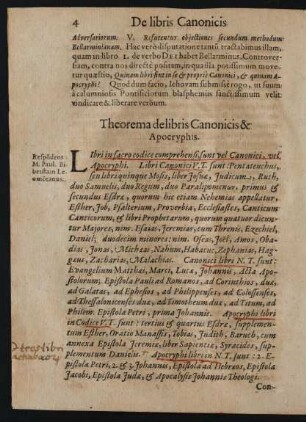 4 De libris Canonicis
Adversariorum. V. Refutentur objectiones secundum methodum
Bellarminianam. Hac verò disputatione tantũ tractabimus illam,
quam in libro 1. de verbo Dei habet Bellarminus, Controver-
siam, contra nos directè positam, in qua illa potissimùm move-
tur quæstio, Quinam libri sint in se & propriè Canonici, & quinam A-
pocryphi? Quod dum facio, laborum submissè rogo, ut suum
à calumniosis Pontificiorum blasphemiis sanctissimum velit
vindicare & liberare verbum.
Theorema de libris Canonicis &
Apocryphis.
Respõdens
M. Paul. Si-
LIbri in sacro codice comprehensi, sunt vel Canonici, vel
Apocryphi. Libri Canonici V. T. sunt: Pentateuchus,
seu libri quinque Mosis, liber Josuæ, Judicum, Ruth,
duo Samuelis, duo Regum, duo Paralipomenωn, primus &
secundus Esdræ, quorum hic etiam Nehemias appellatur,
Esther, Job, Psalterium, Proverbia, Ecclesiastes, Canticum
Canticorum, & libri Prophetarum, quorum quatuor dicun-
tur Majores, nim. Esaias, Jeremias, cum Threnis, Ezechiel,
Daniel; duodecim minores: nim. Oseas, Joël, Amos, Oba-
dias, Jonas, Micheas, Nahum, Habacuc, Zephanias, Hag-
gæus, Zacharias, Malachias. Canonici libri N. T. sunt:
Evangelium Matthæi, Marci, Lucæ, Johannis, Acta Apo-
stolorum, Epistola Pauli ad Romanos, ad Corinthios duæ,
ad Galatas, ad Ephesios, ad Philippenses, ad Colossenses,
ad Thessalonicenses duæ, ad Timotheum duæ, ad Titum, ad
Philem. Epistola Petri, prima Johannis. Apocryphi libri
in Codice V. T. sunt: tertius & quartus Esdræ, supplemen-
tum Esther, Oratio Manasse, Tobias, Judith, Baruch, cum
annexa Epistola Jeremiæ, liber Sapientiæ, Syracides, sup-
plementum Danielis. Apocryphi libri in N. T. sunt: 2. E-
pistola Petri, 2. & 3. Johannis, Epistola ad Hebræos, Epistola
Jacobi, Epistola Judæ, & Apocalypsis Johannis Theologi.
Con-